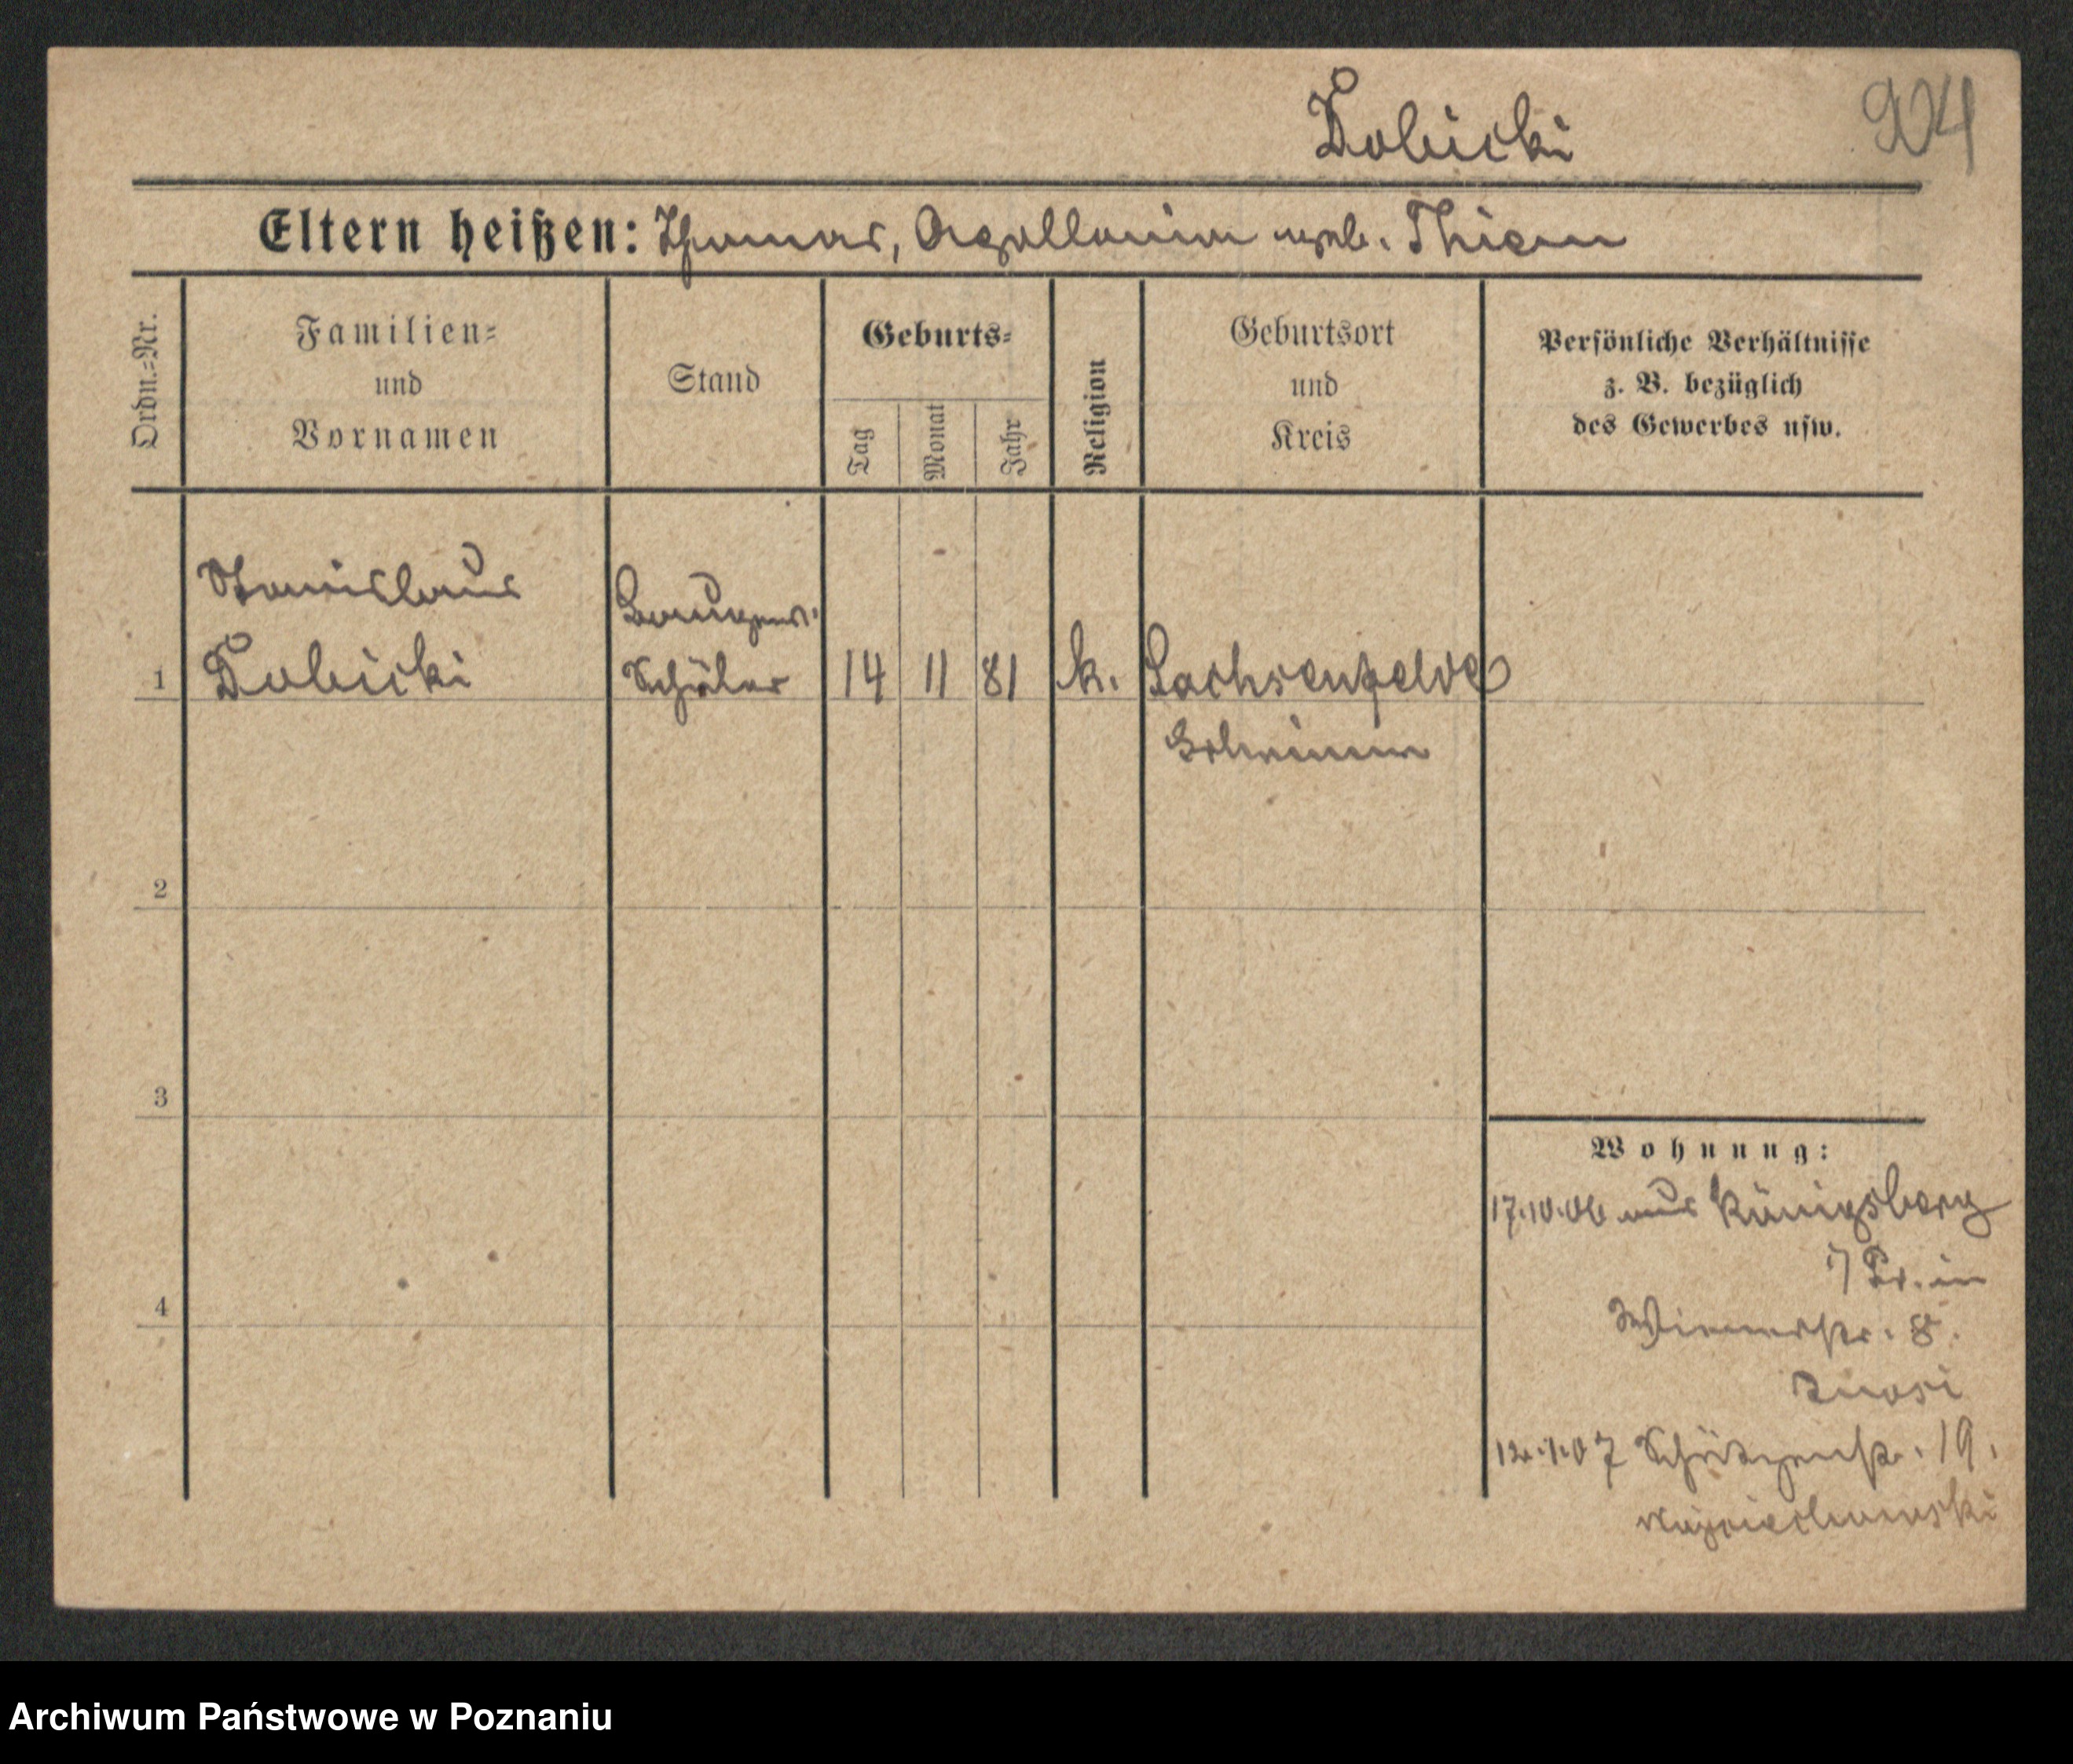 Dobicki
924
Eltern heißen: Thomas, Apollonia geb. Thiem
Ordn.-Nr.
Familien-
und
Vornamen
Stand
Geburts-
Tag
Monat
Jahr
Religion
Geburtsort
und
Kreis
Persönliche Verhältnisse
z. B. bezüglich
des Gewerbes usw.
Stanislaus
Baugew.
1 Dobicki Schüler 14 11 81 k. Sachsenfelde
Schrimm
2
3
4
Wohnung:
17.10.06 aus Königsberg
i/Pr. in
Wienerstr. 8.
12.1.07 Schützenstr. 19.
Wojciechowski
Archiwum Państwowe w Poznaniu